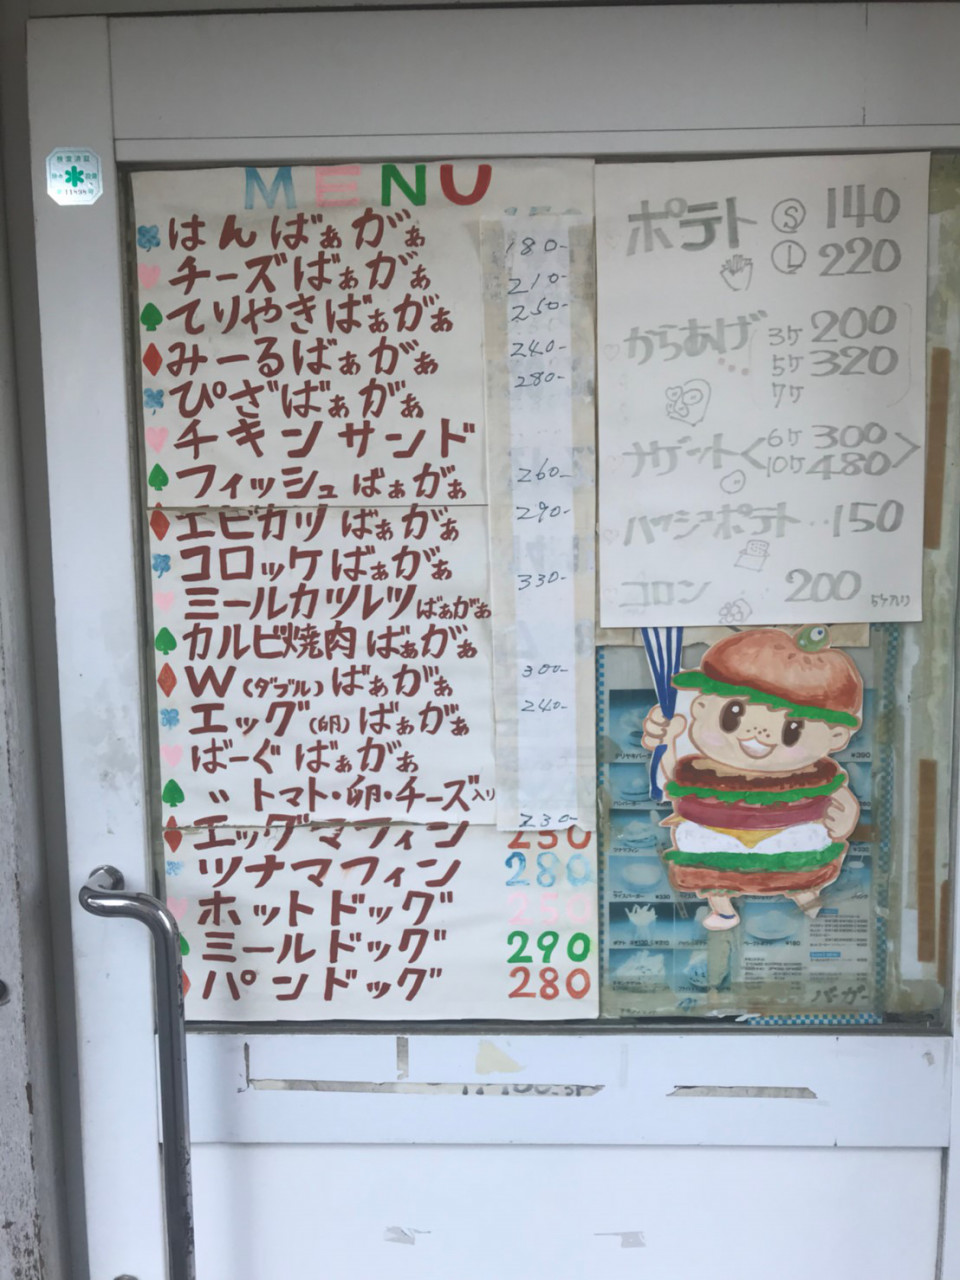 MENU
はんばぁがぁ 180-
チーズばぁがぁ 210-
てりやきばぁがぁ 250-
みーるばぁがぁ 240-
ぴざばぁがぁ 280-
チキンサンド
フィッシュばぁがぁ 260-
エビカツばぁがぁ 290-
コロッケばぁがぁ
ミールカツレツばぁがぁ 330-
カルビ焼肉ばぁがぁ
W(ダブル)ばぁがぁ 300-
エッグ(卵)ばぁがぁ 240-
ばーぐばぁがぁ
〃 トマト・卵・チーズ入り
230-
エッグマフィン 250
ツナマフィン 280
ホットドッグ 250
ミールドッグ 290
パンドッグ 280
ポテト Ⓢ 140
Ⓛ 220
からあげ 3ケ 200
5ケ 320
7ケ
ナゲット 6ケ 300
10ケ 480
ハッシュポテト‥150
コロン 200
バーガー